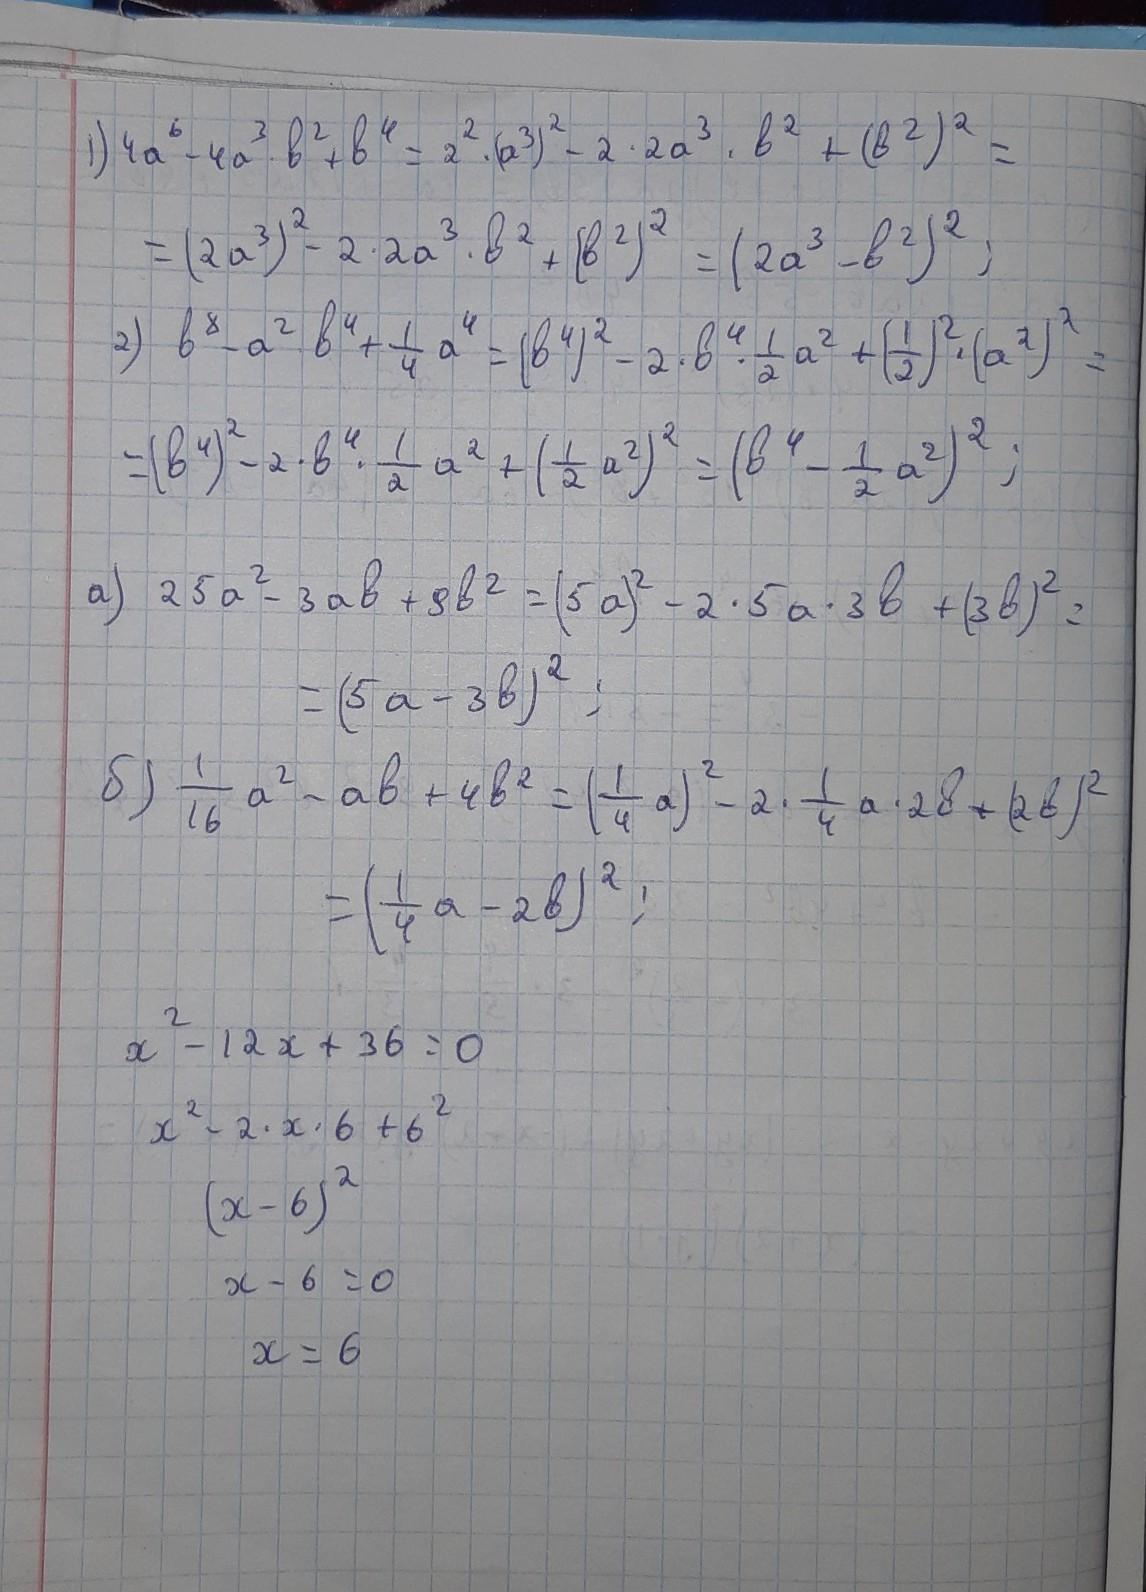 1) 4a⁶ - 4a³·b² + b⁴ = 2²·(a³)² - 2·2a³·b² + (b²)² =
= (2a³)² - 2·2a³·b² + (b²)² = (2a³ - b²)²;
2) b⁸ - a² b⁴ + 1/4 a⁴ = (b⁴)² - 2·b⁴·1/2 a² + (1/2)²·(a²)² =
= (b⁴)² - 2·b⁴·1/2 a² + (1/2 a²)² = (b⁴ - 1/2 a²)²;
а) 25a² - 3ab + 9b² = (5a)² - 2·5a·3b + (3b)² =
= (5a - 3b)²;
б) 1/16 a² - ab + 4b² = (1/4 a)² - 2·1/4 a·2b + (2b)²
= (1/4 a - 2b)²;
x² - 12x + 36 = 0
x² - 2·x·6 + 6²
(x - 6)²
x - 6 = 0
x = 6